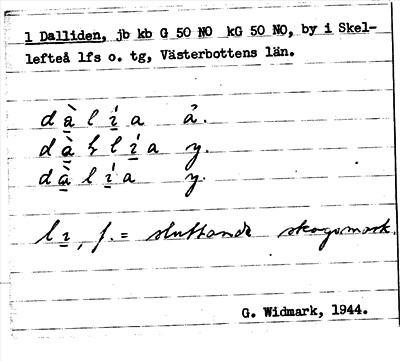 1 Dalliden, jb kb G 50 NO kG 50 NO, by i Skel-
lefteå lfs o. tg, Västerbottens län.
dà̱lí̱a å.
dà̱ɫlí̱a y.
dà̱lí̱a y.
lı̱, f. = sluttande skogsmark.
G. Widmark, 1944.